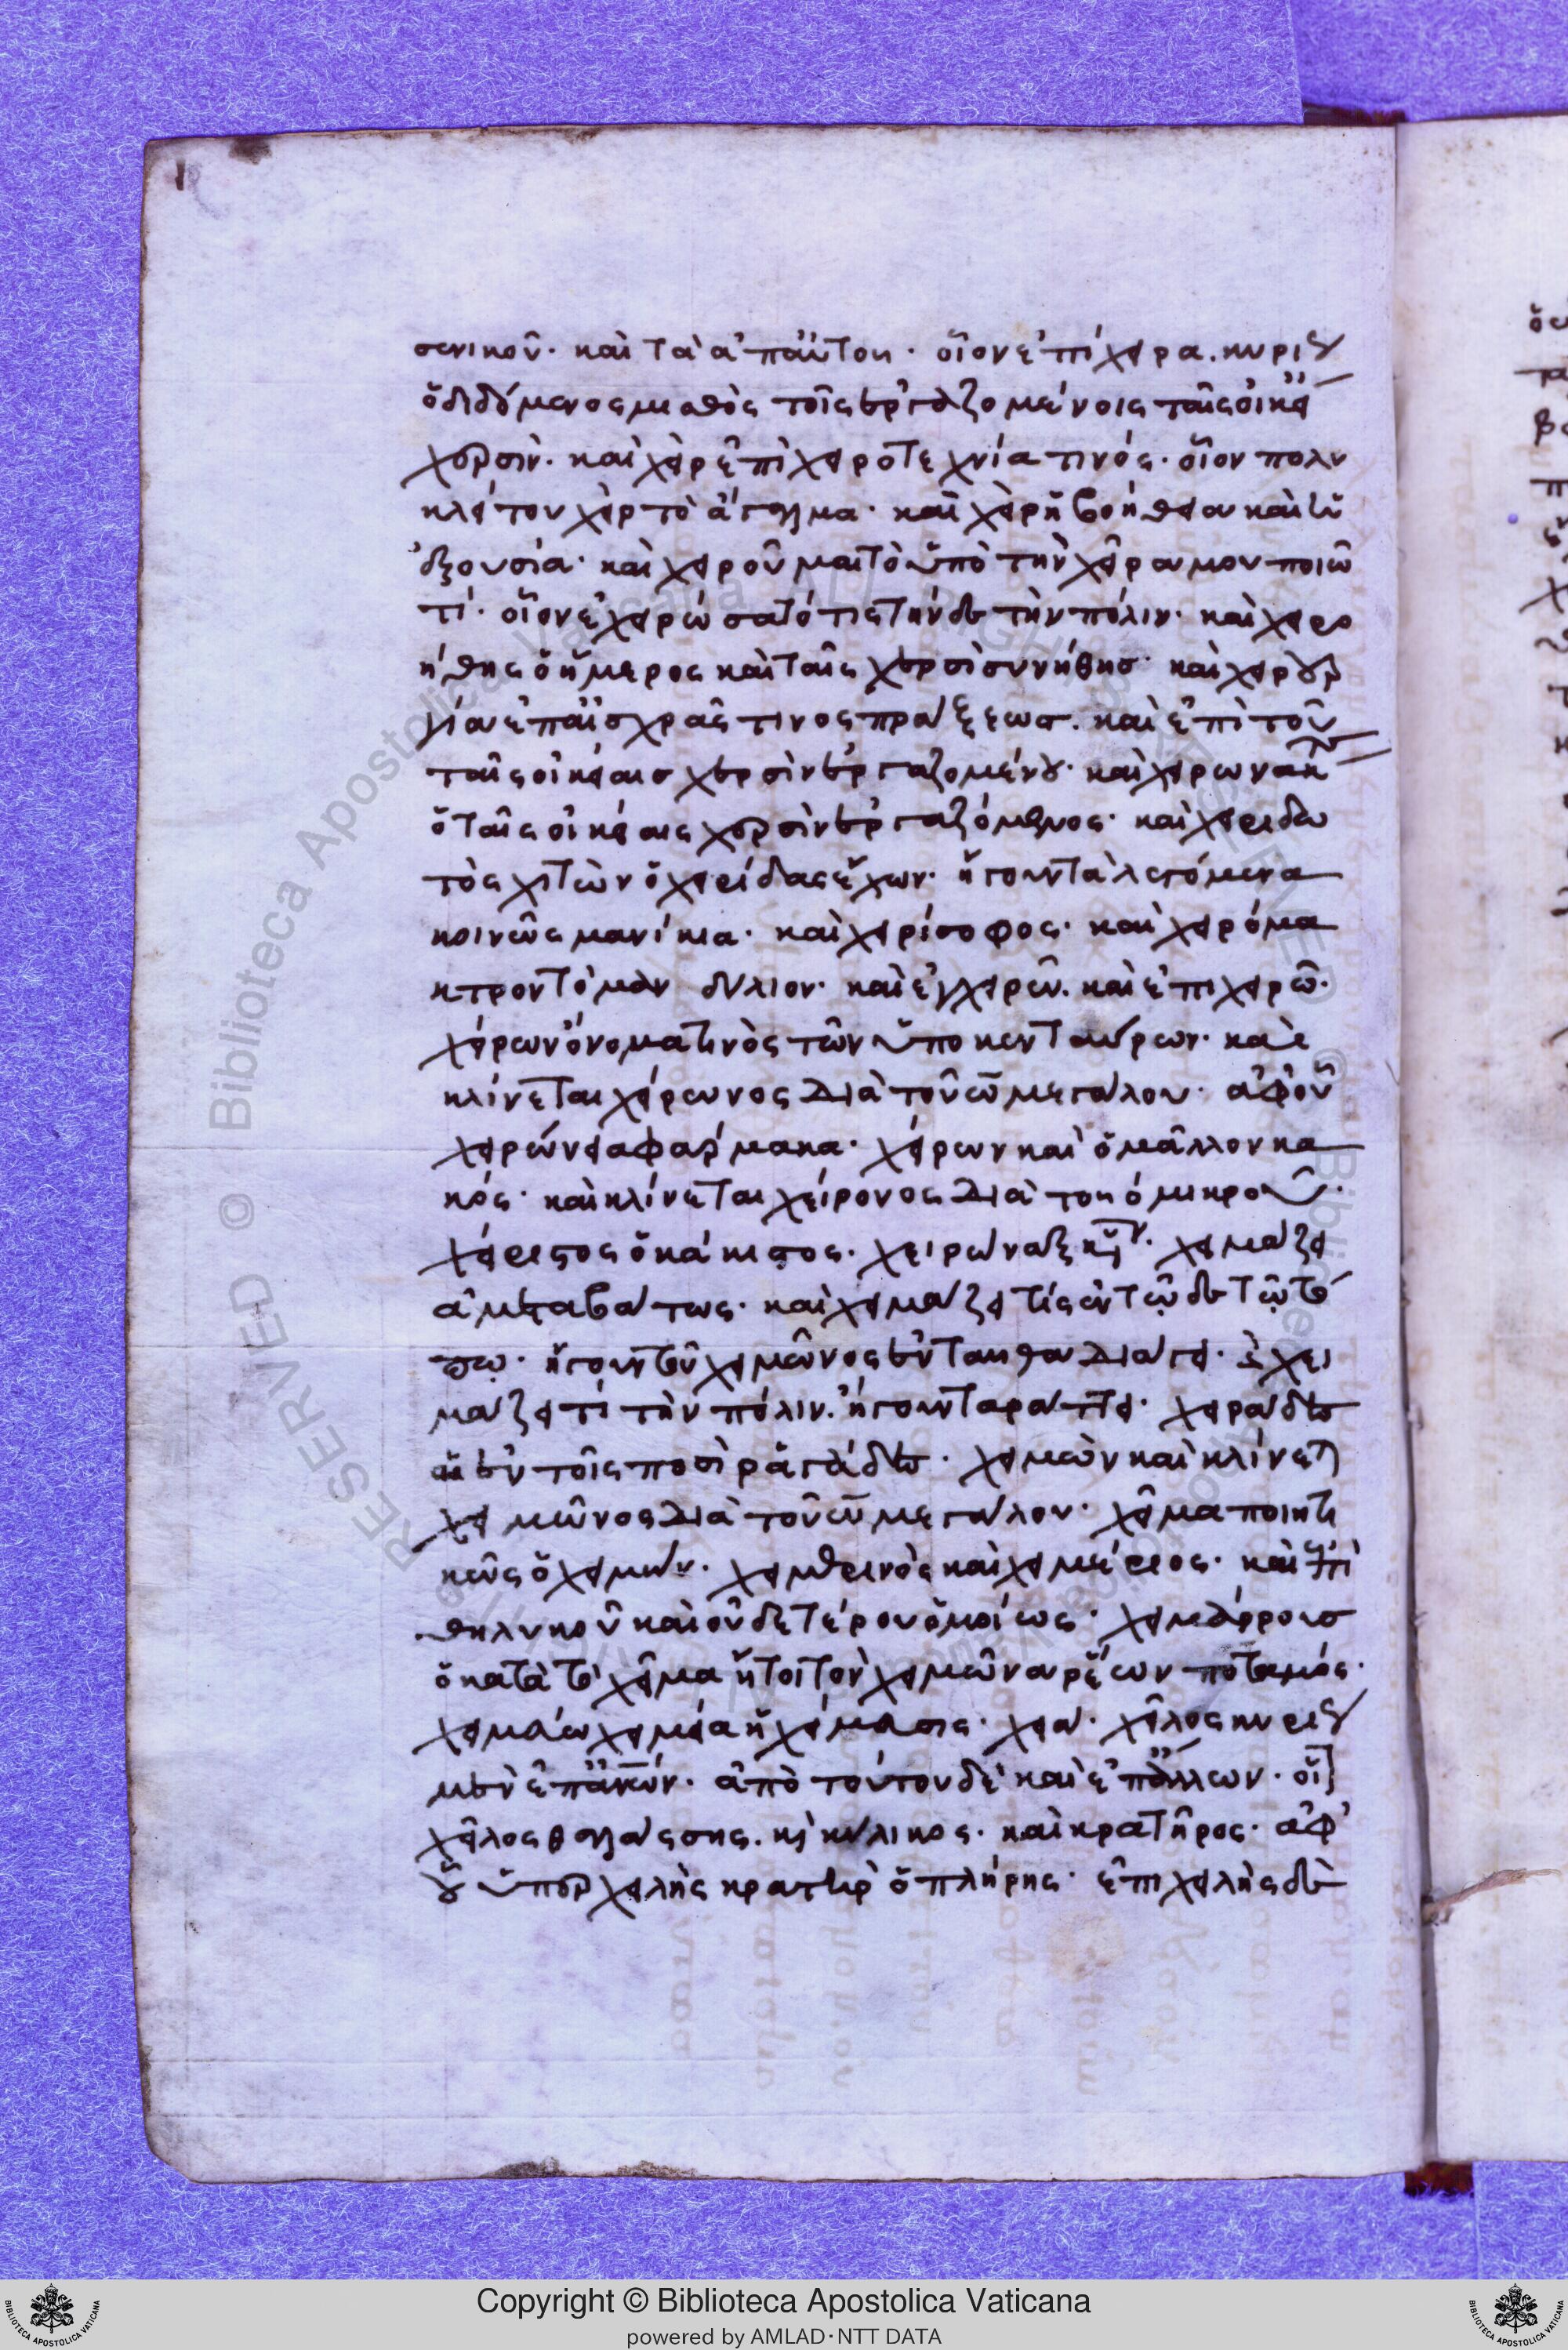 σενικοῦ· καὶ τὰ ἀπ' αὐτοῦ· οἷον ἐπίχειρα· κυρίου
ὁ διδόμενος μισθὸς τοῖς ἐργαζομένοις ταῖς οἰκεί
χερσίν· καὶ χεὶρ ἐπὶ χειροτεχνία τινός· οἷον πολυ
κλείτου χεὶρ τὸ ἄγαλμα· καὶ χεὶρ ἡ βοήθεια καὶ ἡ
ἐξουσία· καὶ χειροῦμαι τὸ ὑπὸ τὴν χεῖρα μου ποιῶ
τί· οἷον ἐχειρώσατό τις τήνδε τὴν πόλιν· καὶ χειρο
ήθης ὁ ἥμερος καὶ ταῖς χερσὶ συνήθης· καὶ χειρουρ
γία ἐπ' αἰσχρᾶς τινος πράξεως· καὶ ἐπὶ τοῦ
ταῖς οἰκείαις χερσὶν ἐργαζομένου· καὶ χειρωνακτ
ὁ ταῖς οἰκείαις χερσὶν ἐργαζόμενος· καὶ χειριδω
τὸς χιτὼν ὁ χειρίδας ἔχων· ἤγουν τὰ λεγόμενα
κοινῶς μανίκια· καὶ χειρίσοφος· καὶ χειρόμα
κτρον τὸ μανδύλιον· καὶ ἐγχειρῶ· καὶ ἐπιχειρῶ·
χείρων ὄνομα τινὸς τῶν ὑποκενταύρων· καὶ
κλίνεται χείρωνος διὰ τοῦ ω μεγάλου· ἀφ' οὗ
χειρώνεια φάρμακα· χείρων καὶ ὁ μᾶλλον κα
κός· καὶ κλίνεται χείρονος διὰ τοῦ ο μικροῦ·
χείριστος ὁ κάκιστος· χειρώναξ χειμάζει
ἀμεταβάτως· καὶ χειμάζει τίς ἐν τῷδε τῷ τό
πῳ· ἤγουν τοῦ χειμῶνος ἐνταῦθα διάγει· ἢ χει
μάζει τί τὴν πόλιν· ἤγουν ταράττει· χειράδες
αἱ ἐν τοῖς ποσὶ ῥαγάδες· χειμὼν καὶ κλίνεται
χειμῶνος διὰ τοῦ ω μεγάλου· χεῖμα ποιητι
κῶς ὁ χειμών· χειμερινὸς καὶ χειμέριος· καὶ ἐπὶ
θηλυκοῦ καὶ οὐδετέρου ὁμοίως· χειμάρρους
ὁ κατὰ τὸ χεῖμα ἤτοι τὸν χειμῶνα ῥέων ποταμός·
χεῖλος κυρίου
ἀπὸ τούτου δὲ καὶ ἐπ' ἄλλων· οἷον
χεῖλος θαλάσσης· καὶ κύλικος· καὶ κρατῆρος· ἀφ'
οὗ ὑπερχειλὴς κρατὴρ ὁ πλήρης· ἐπιχειλὴς δὲ